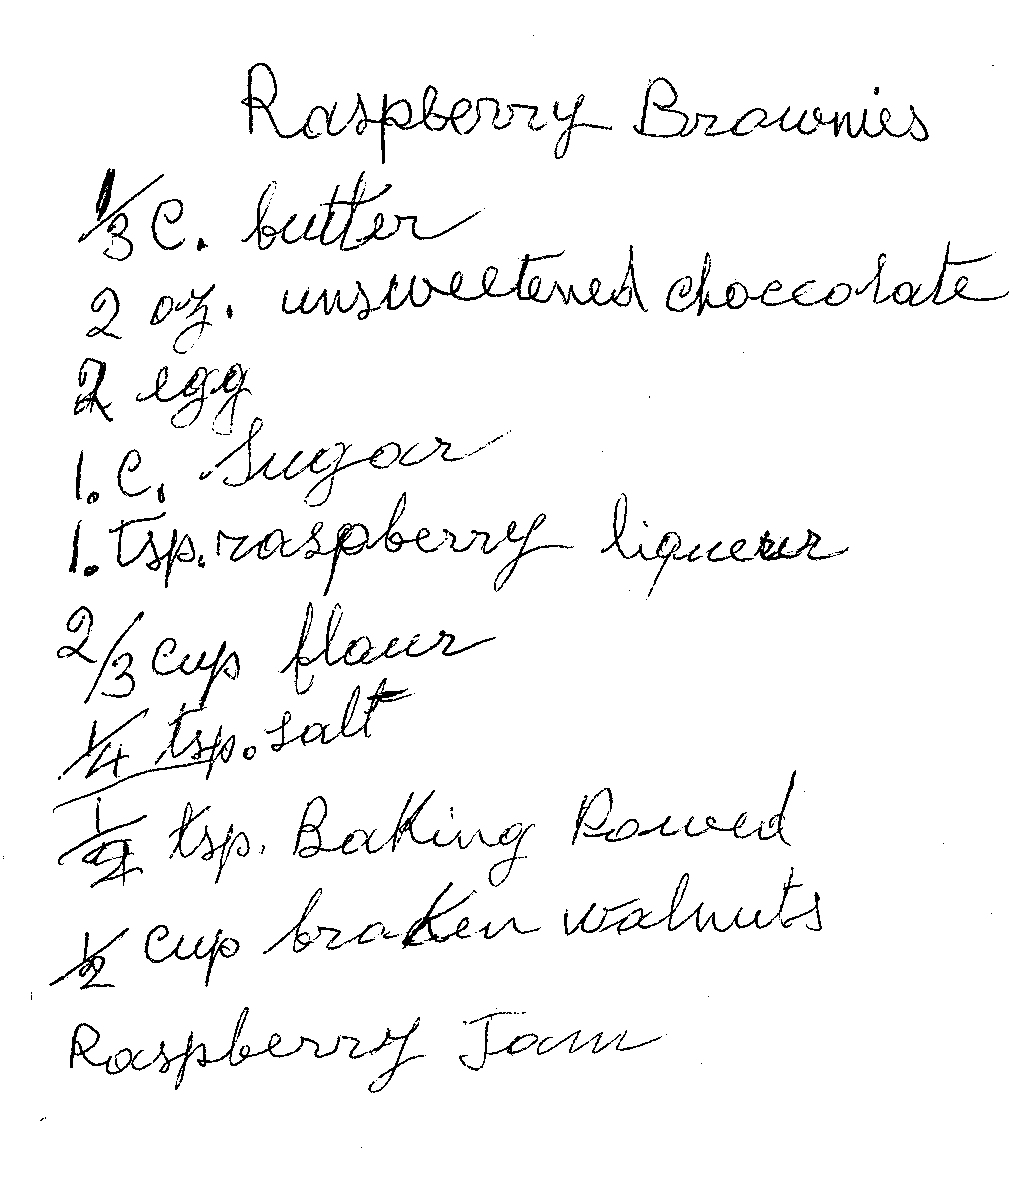 Raspberry Brownies
1/3 C. butter
2 oz. unsweetened choccolate
2 egg
1. C. Sugar
1. tsp. raspberry liqueur
2/3 cup flour
1/4 tsp. salt
tsp. Baking Powed
1/2 cup braken walnuts
Raspberry Jam